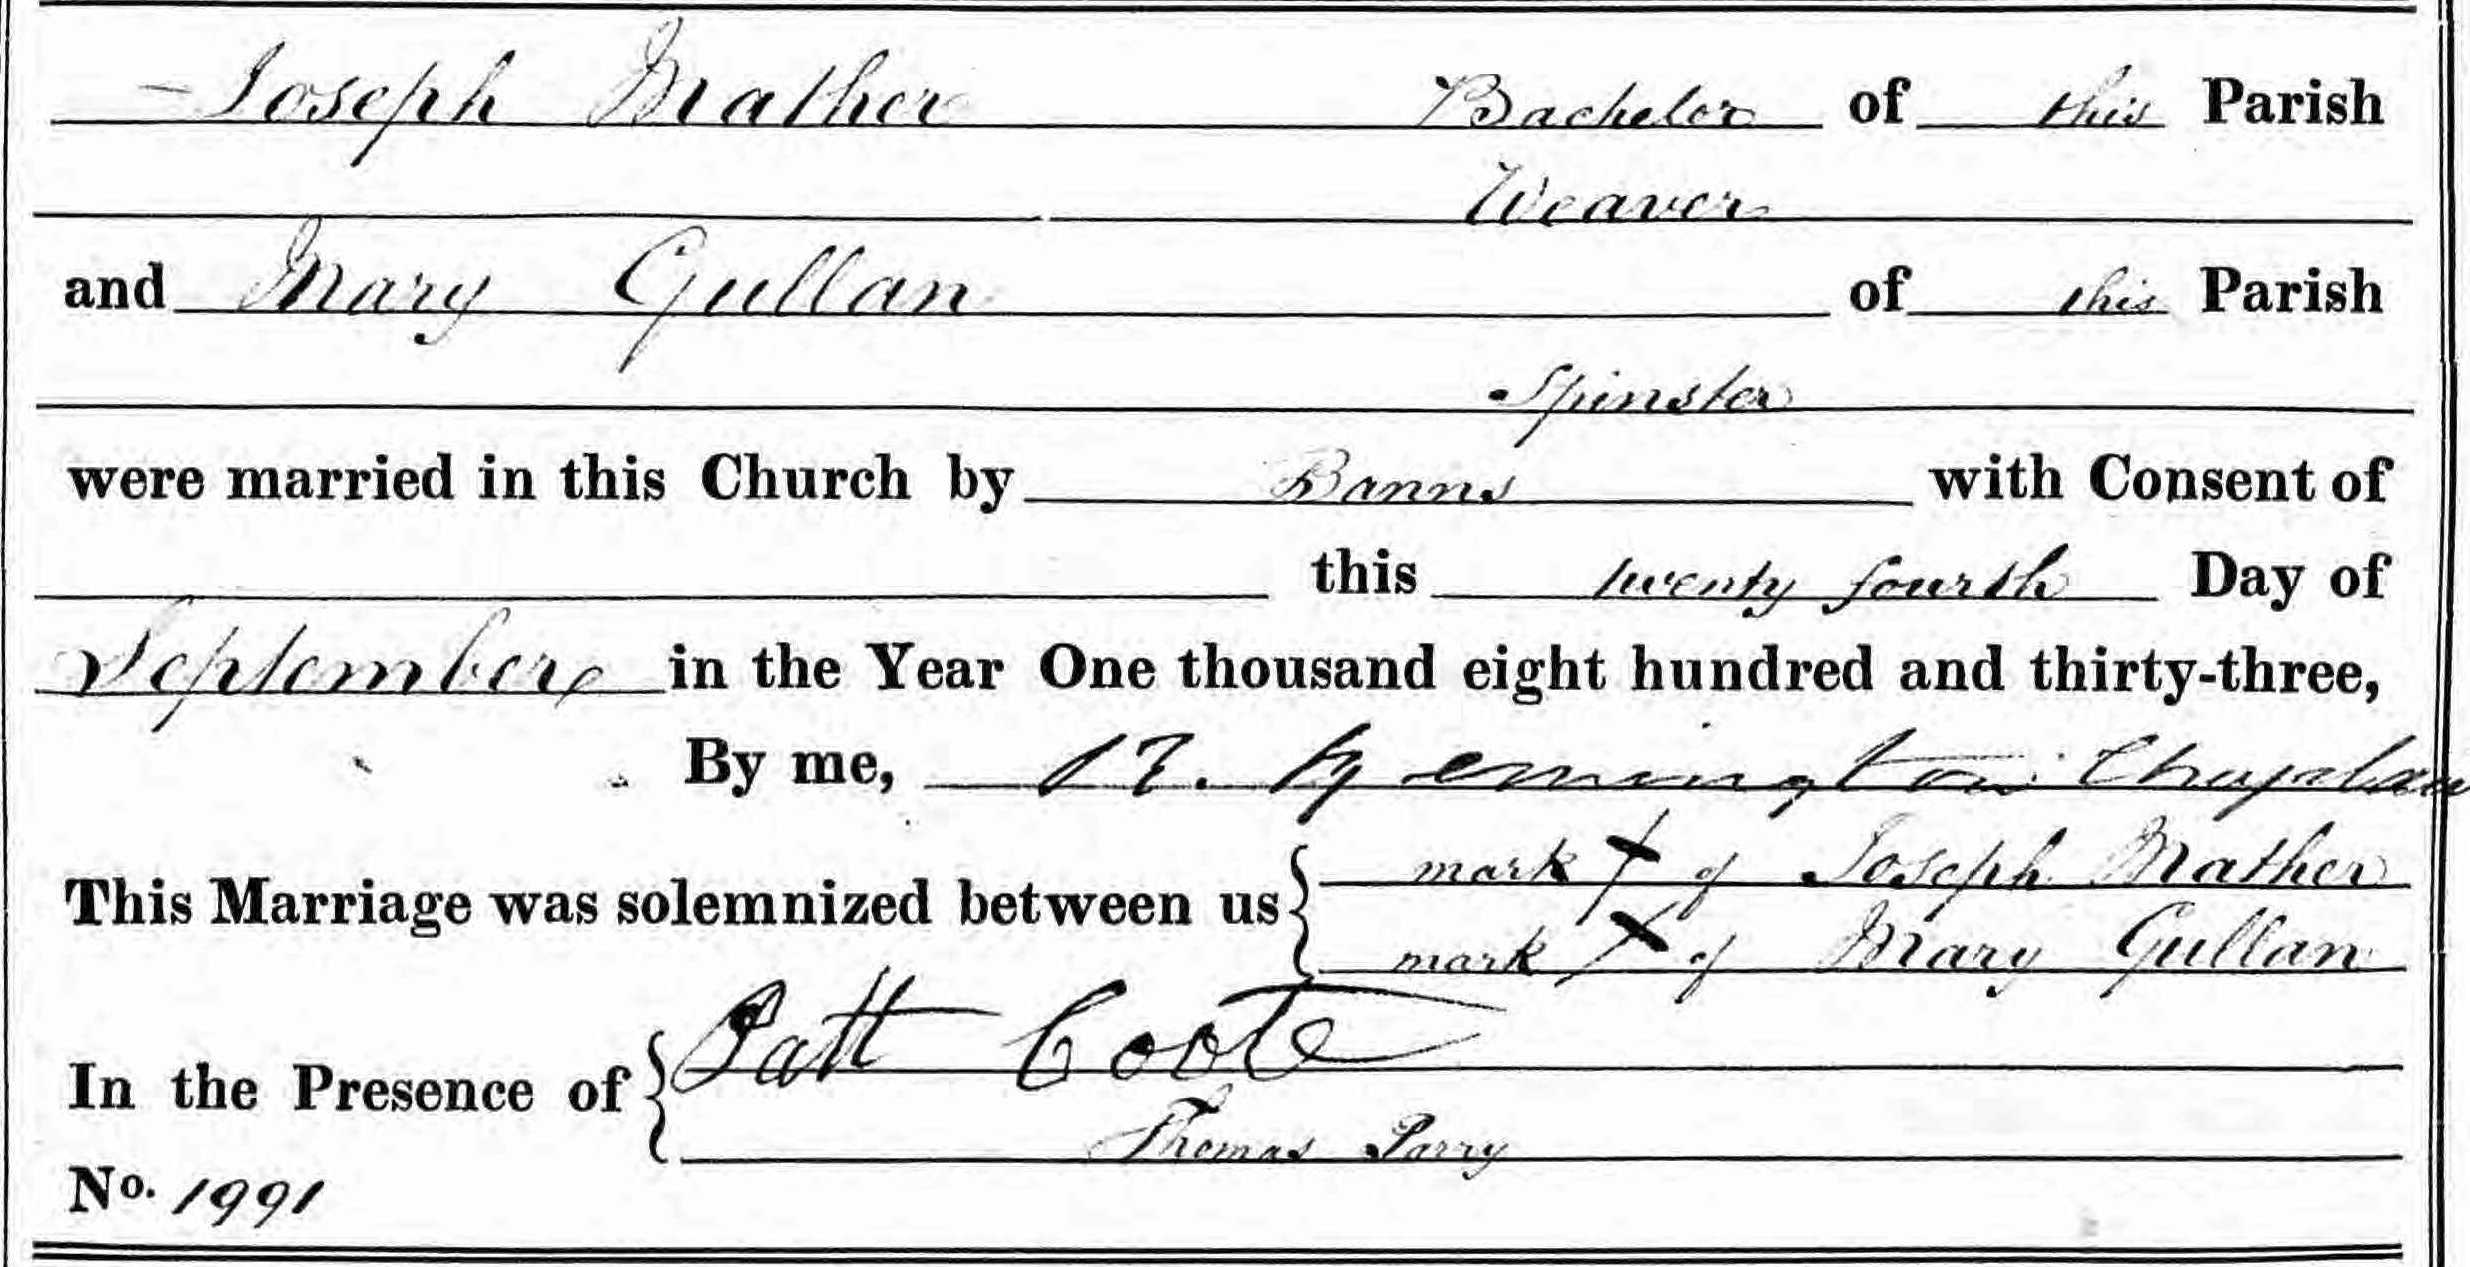 Joseph Mather Bachelor of this Parish
Weaver
and Mary Gullan of this Parish
Spinster
were married in this Church by Banns with Consent of
this twenty fourth Day of
September in the Year One thousand eight hundred and thirty-three,
By me,
This Marriage was solemnized between us { mark X of Joseph Mather
mark X of Mary Gullan
In the Presence of { Patt Coote
Thomas Parry
No. 1991